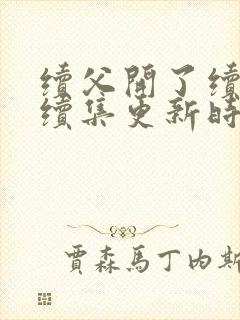 續父開了續
續集更新時
賈森馬丁內斯